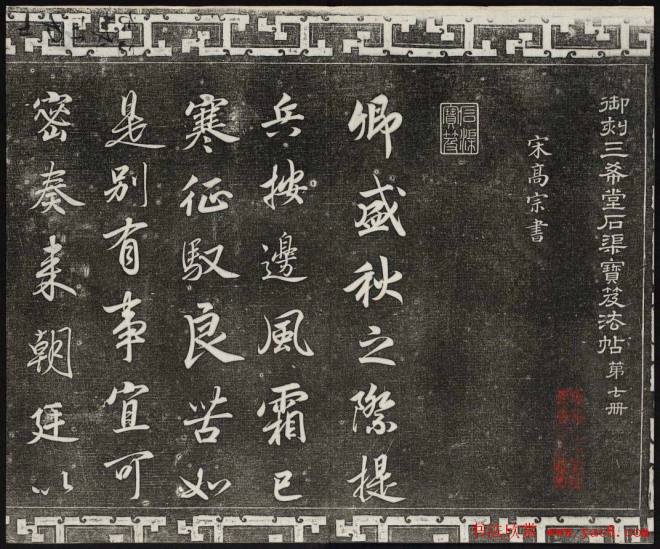 御刻三希堂石渠寶笈法帖第七册
宋高宗書
石渠寶笈
卿盛秋之際提
兵按邊風霜已
寒征馭良苦如
是別有事宜可
密奏来朝廷以
书法欣赏 www.yac8.com